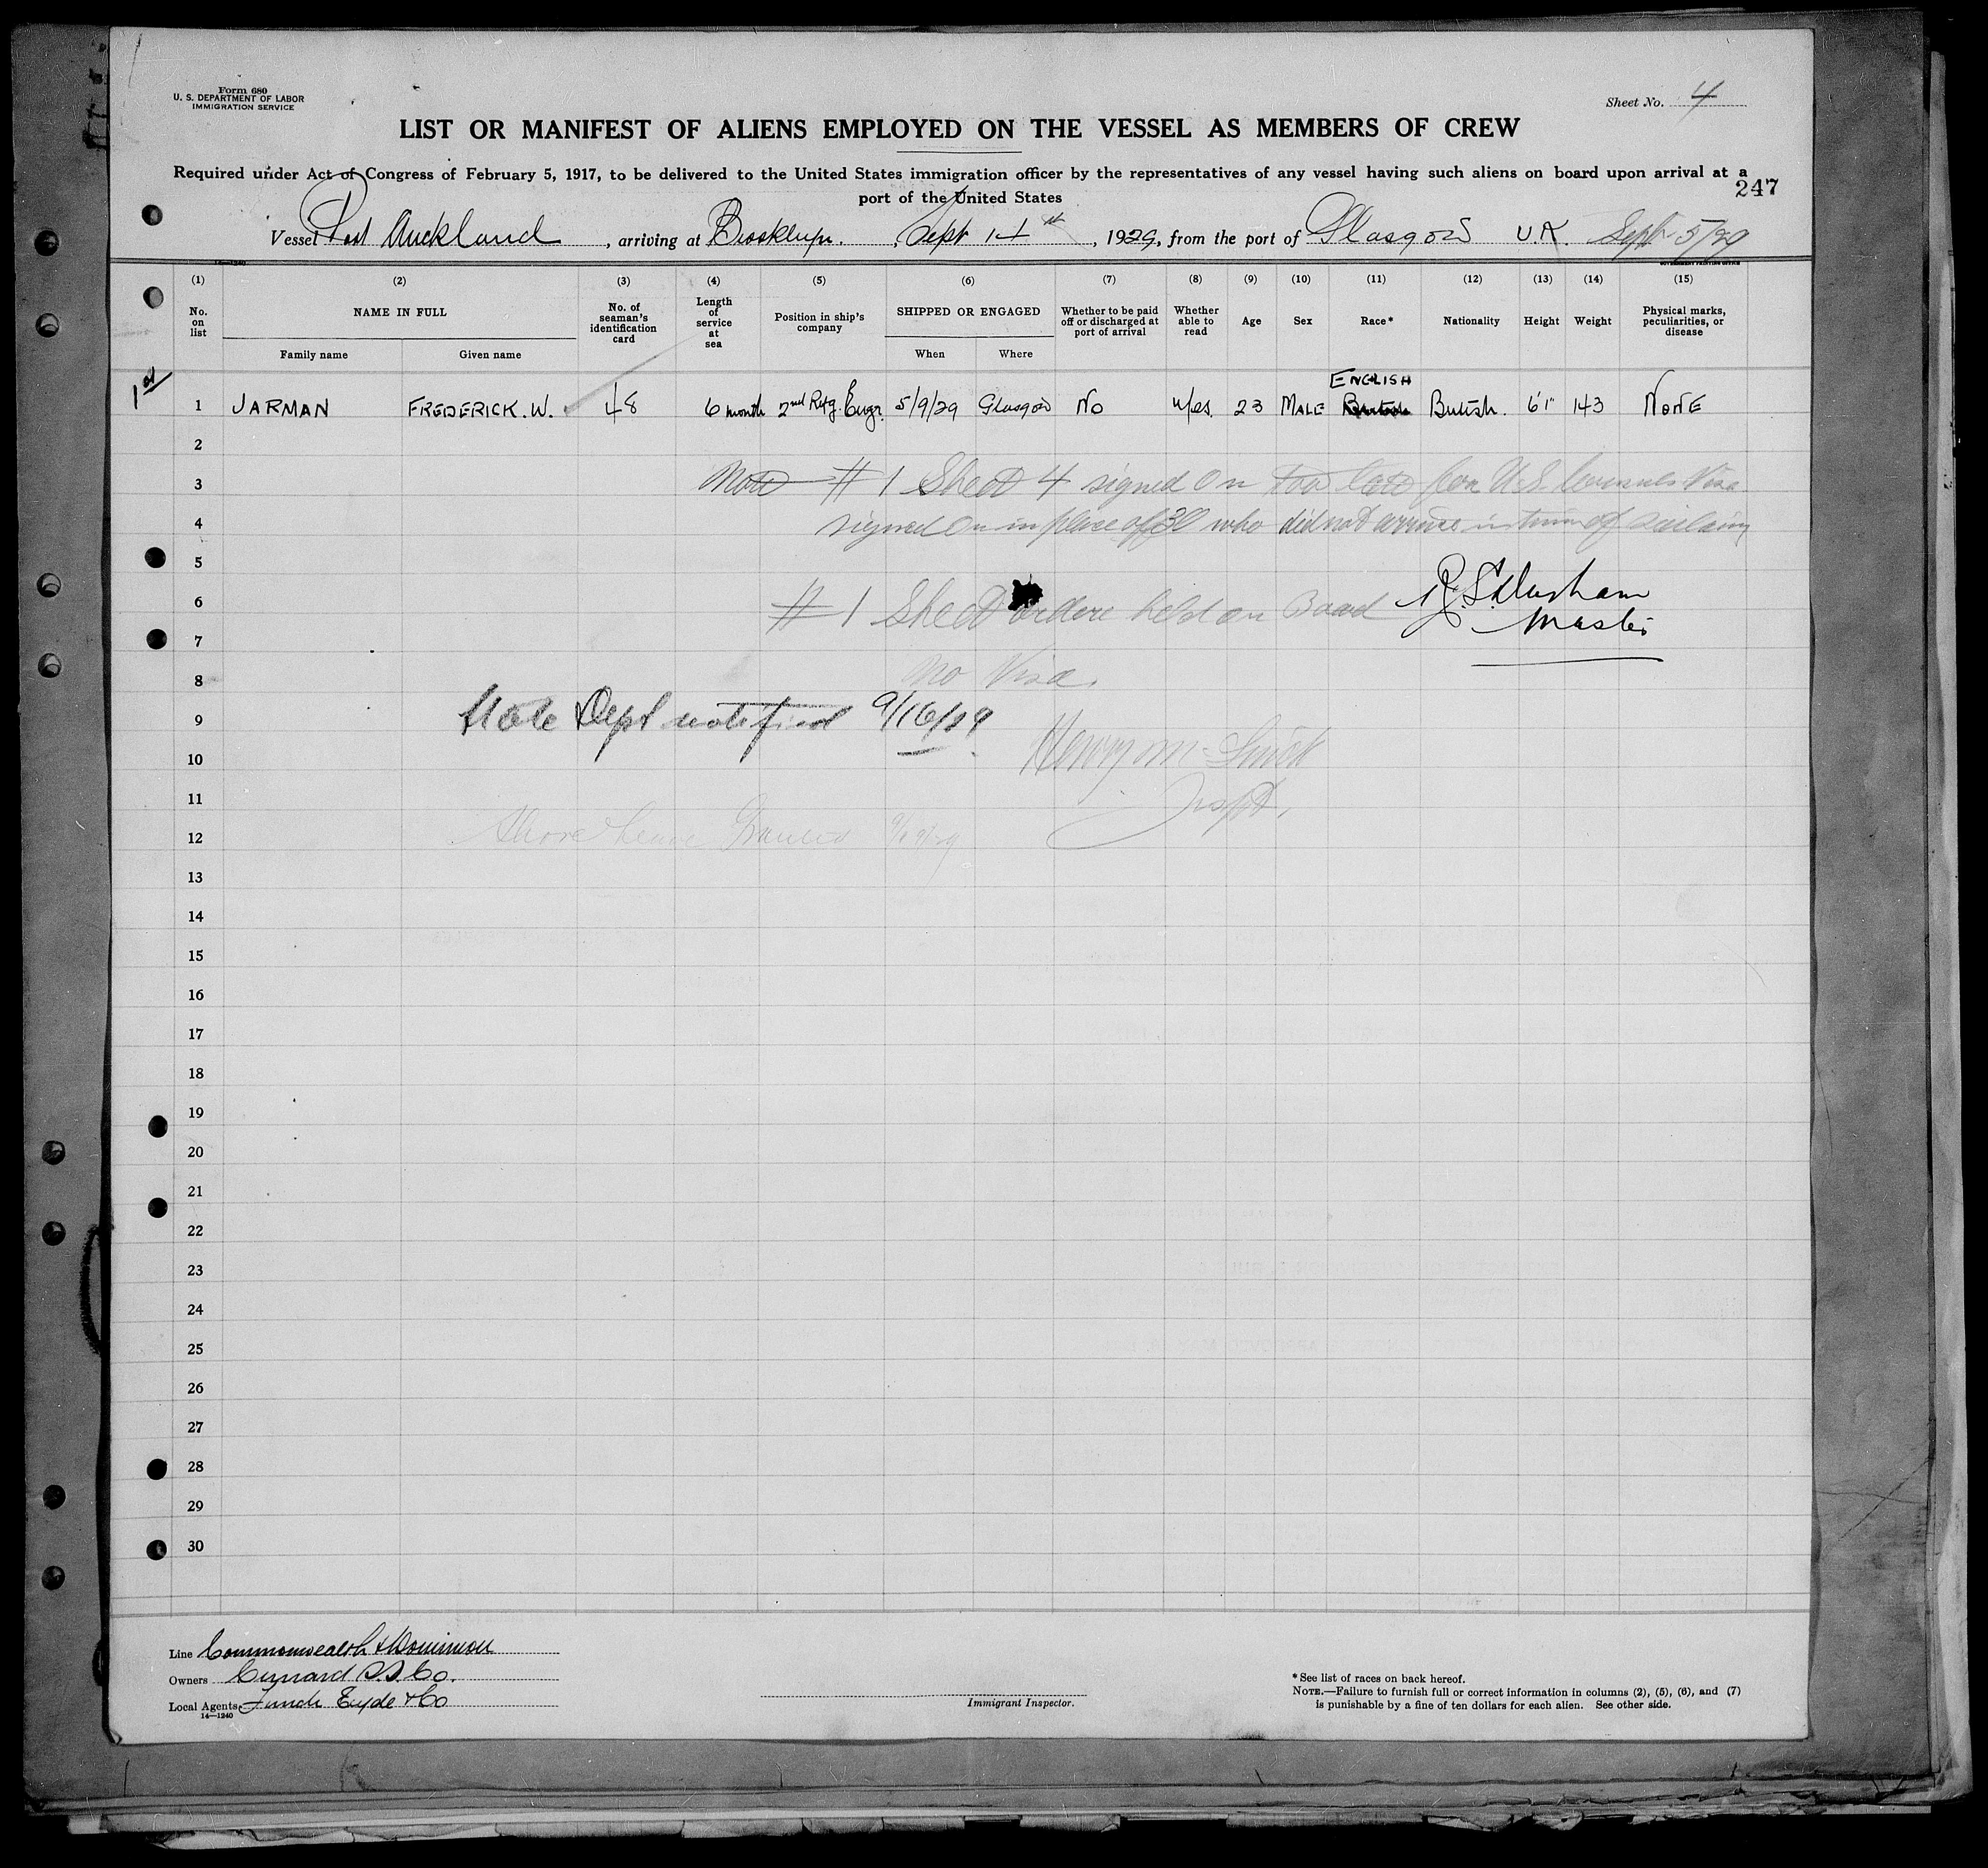 Form 680
U. S. DEPARTMENT OF LABOR
IMMIGRATION SERVICE
Sheet No. 4
LIST OR MANIFEST OF ALIENS EMPLOYED ON THE VESSEL AS MEMBERS OF CREW
Required under Act of Congress of February 5, 1917, to be delivered to the United States immigration officer by the representatives of any vessel having such aliens on board upon arrival at a
port of the United States
247
Vessel Port Auckland, arriving at Brooklyn., Sept 14th, 1929, from the port of Glasgow U.K. Sept 5/29
(1) (2) (3) (4) (5) (6) (7) (8) (9) (10) (11) (12) (13) (14) (15)
No. on list NAME IN FULL No. of seaman's identification card Length of service at sea Position in ship's company SHIPPED OR ENGAGED Whether to be paid off or discharged at port of arrival Whether able to read Age Sex Race* Nationality Height Weight Physical marks, peculiarities, or disease
Family name Given name When Where
ENGLISH
1 JARMAN FREDERICK. W. 48 6 month 2nd Rfg. Engr. 5/9/29 Glasgow No yes. 23 MALE British British. 6'1" 143 NONE
2
3 Note #1 Sheet 4 signed on too late for U.S. Consuls Visa
4 signed on in place of 30 who did not arrive in time of sailing
5
6 #1 Sheet held on Board
7 Master
8 No Visa.
9 State Dept notified 9/16/29
10 Henry
11 Inspt.
12 Shore Leave Granted
13
14
15
16
17
18
19
20
21
22
23
24
25
26
27
28
29
30
Line Commonwealth & Dominion
Owners Cunard S.S. Co.
Local Agents Funch Edye & Co
14—1240
Immigrant Inspector.
* See list of races on back hereof.
NOTE.—Failure to furnish full or correct information in columns (2), (5), (6), and (7)
is punishable by a fine of ten dollars for each alien. See other side.